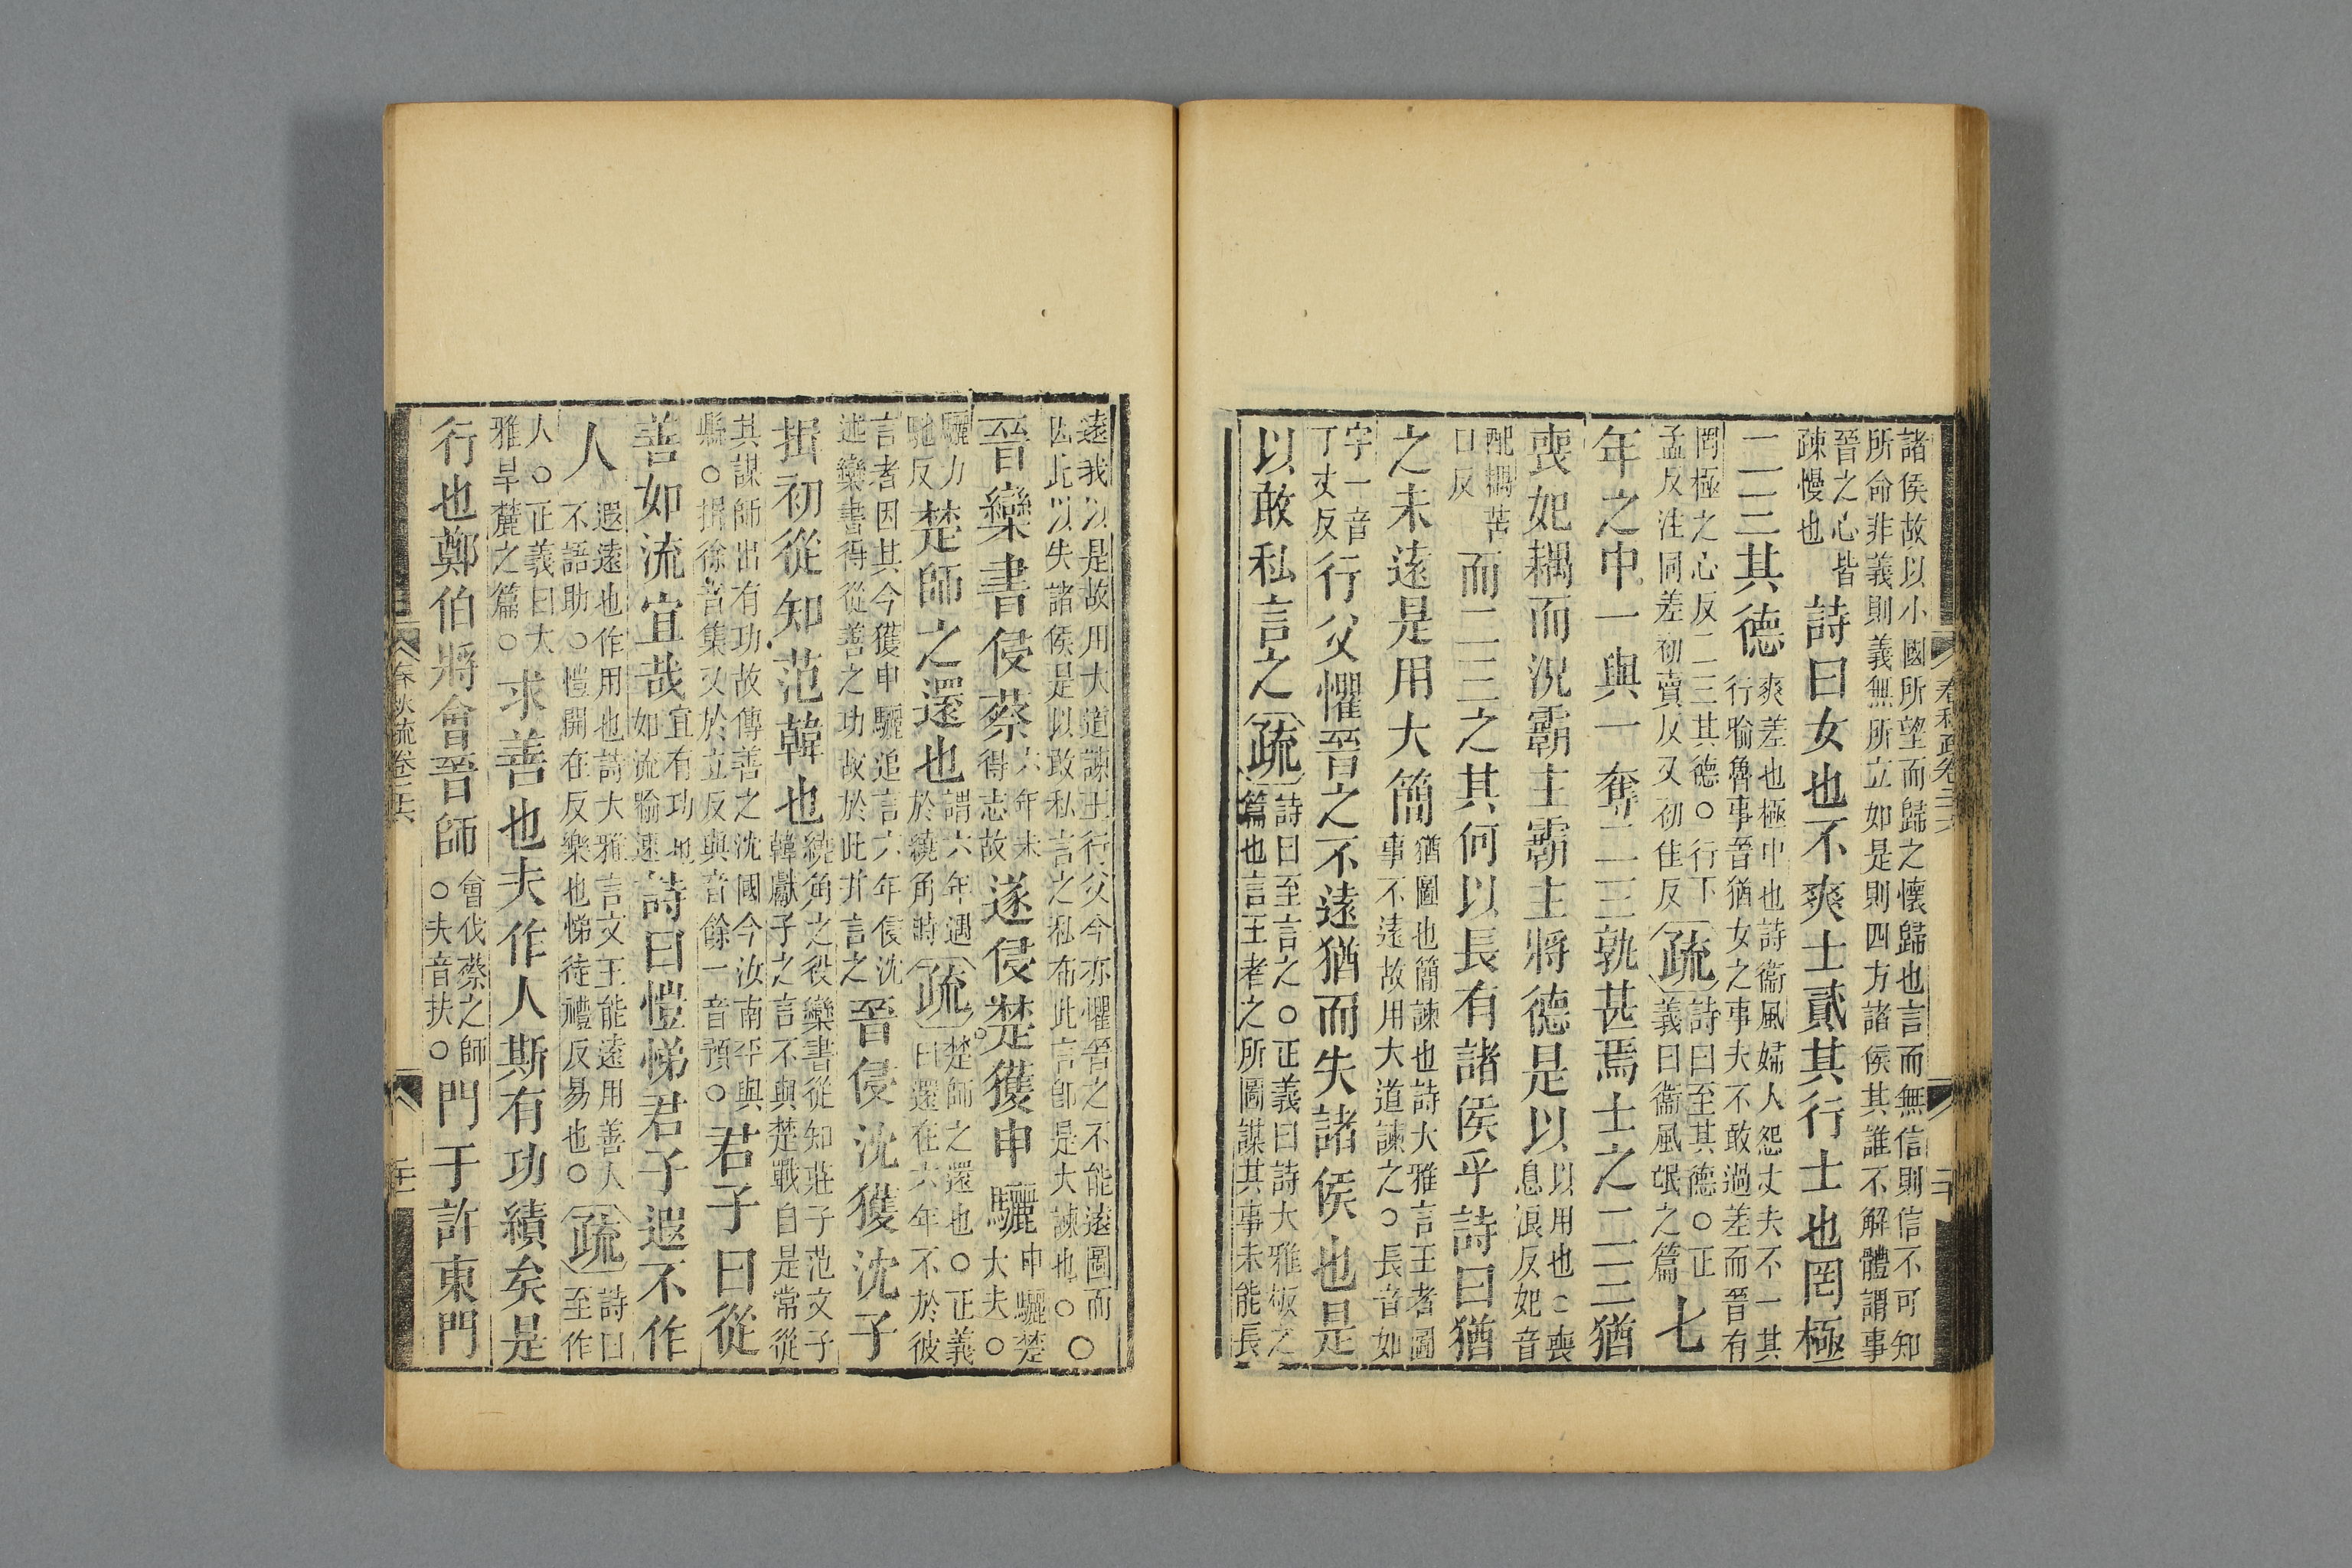 諸侯故以小國所望而歸之懷歸也言而無信則信不可知
所命非義則義無所立如是則四方諸侯其誰不解體謂事
晉之心皆
疎慢也
詩曰女也不爽士貳其行士也罔極
二三其德
爽差也極中也詩衛風婦人怨丈夫不一其
行喻魯事晉猶女之事夫不敢過差而晉有
罔極之心反二三其德○行下
孟反注同差初賣反又初佳反
疏
詩曰至其德○正
義曰衛風氓之篇
七
年之中一與一奪二三孰甚焉士之二三猶
喪妃耦而況霸主霸主將德是以
以用也○喪
息浪反妃音
配耦苦
口反
而二三之其何以長有諸侯乎詩曰猶
之未遠是用大簡
猶圖也簡諫也詩大雅言王者圖
事不遠故用大道諫之○長音如
字一音
丁丈反
行父懼晉之不遠猶而失諸侯也是
以敢私言之
疏
詩曰至言之○正義曰詩大雅板之
篇也言王者之所圖謀其事未能長
遠我以是故用大道諫王行父今亦懼晉之不能遠圖而
因此以失諸侯是以敢私言之私布此言即是大諫也○
○
晉欒書侵蔡
六年未
得志故
遂侵楚獲申驪
申驪楚
大夫○
驪力
馳反
楚師之還也
謂六年遇
於繞角時
疏
楚師之還也○正義
曰還在六年不於彼
言者因其今獲申驪追言六年侵沈
述欒書得從善之功故於此并言之
晉侵沈獲沈子
揖初從知范韓也
繞角之役欒書從知莊子范文子
韓獻子之言不與楚戰自是常從
其謀師出有功故傳善之沈國今汝南平輿
縣○揖徐音集又於立反與音餘一音預○
君子曰從
善如流宜哉
宜有功也
如流喻速
詩曰愷悌君子遐不作
人
遐遠也作用也詩大雅言文王能遠用善人
不語助○愷開在反樂也悌待禮反易也○
疏
詩曰
至作
人○正義曰大
雅旱麓之篇○
求善也夫作人斯有功績矣是
行也鄭伯將會晉師
會伐蔡之師
○夫音扶○
門于許東門
春秋疏卷二六